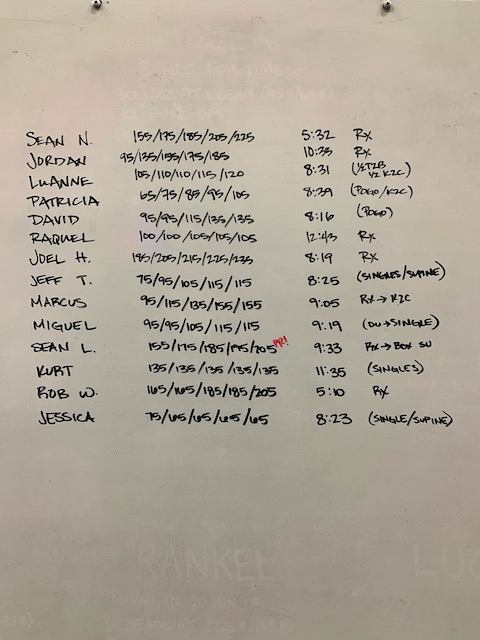 SEAN N. 155/175/185/205/225 5:32 RX
JORDAN 95/135/155/175/185 10:33 RX
LUANNE 105/110/110/115/120 8:31 (1/2 T2B 1/2 K2C)
PATRICIA 65/75/85/95/105 8:39 (POGO/K2C)
DAVID 95/95/115/135/135 8:16 (POGO)
RAQUEL 100/100/105/105/105 12:43 RX
JOEL H. 185/205/215/225/235 8:19 RX
JEFF T. 75/95/105/115/115 8:25 (SINGLES/SUPINE)
MARCUS 95/115/135/155/155 9:05 RX → K2C
MIGUEL 95/95/105/115/115 9:19 (DU → SINGLE)
SEAN L. 155/175/185/195/205 PR! 9:33 RX → BOX SU
KURT 135/135/135/135/135 11:35 (SINGLES)
ROB W. 165/165/185/185/205 5:10 RX
JESSICA 75/65/65/65/65 8:23 (SINGLE/SUPINE)
RANKEL
LUC